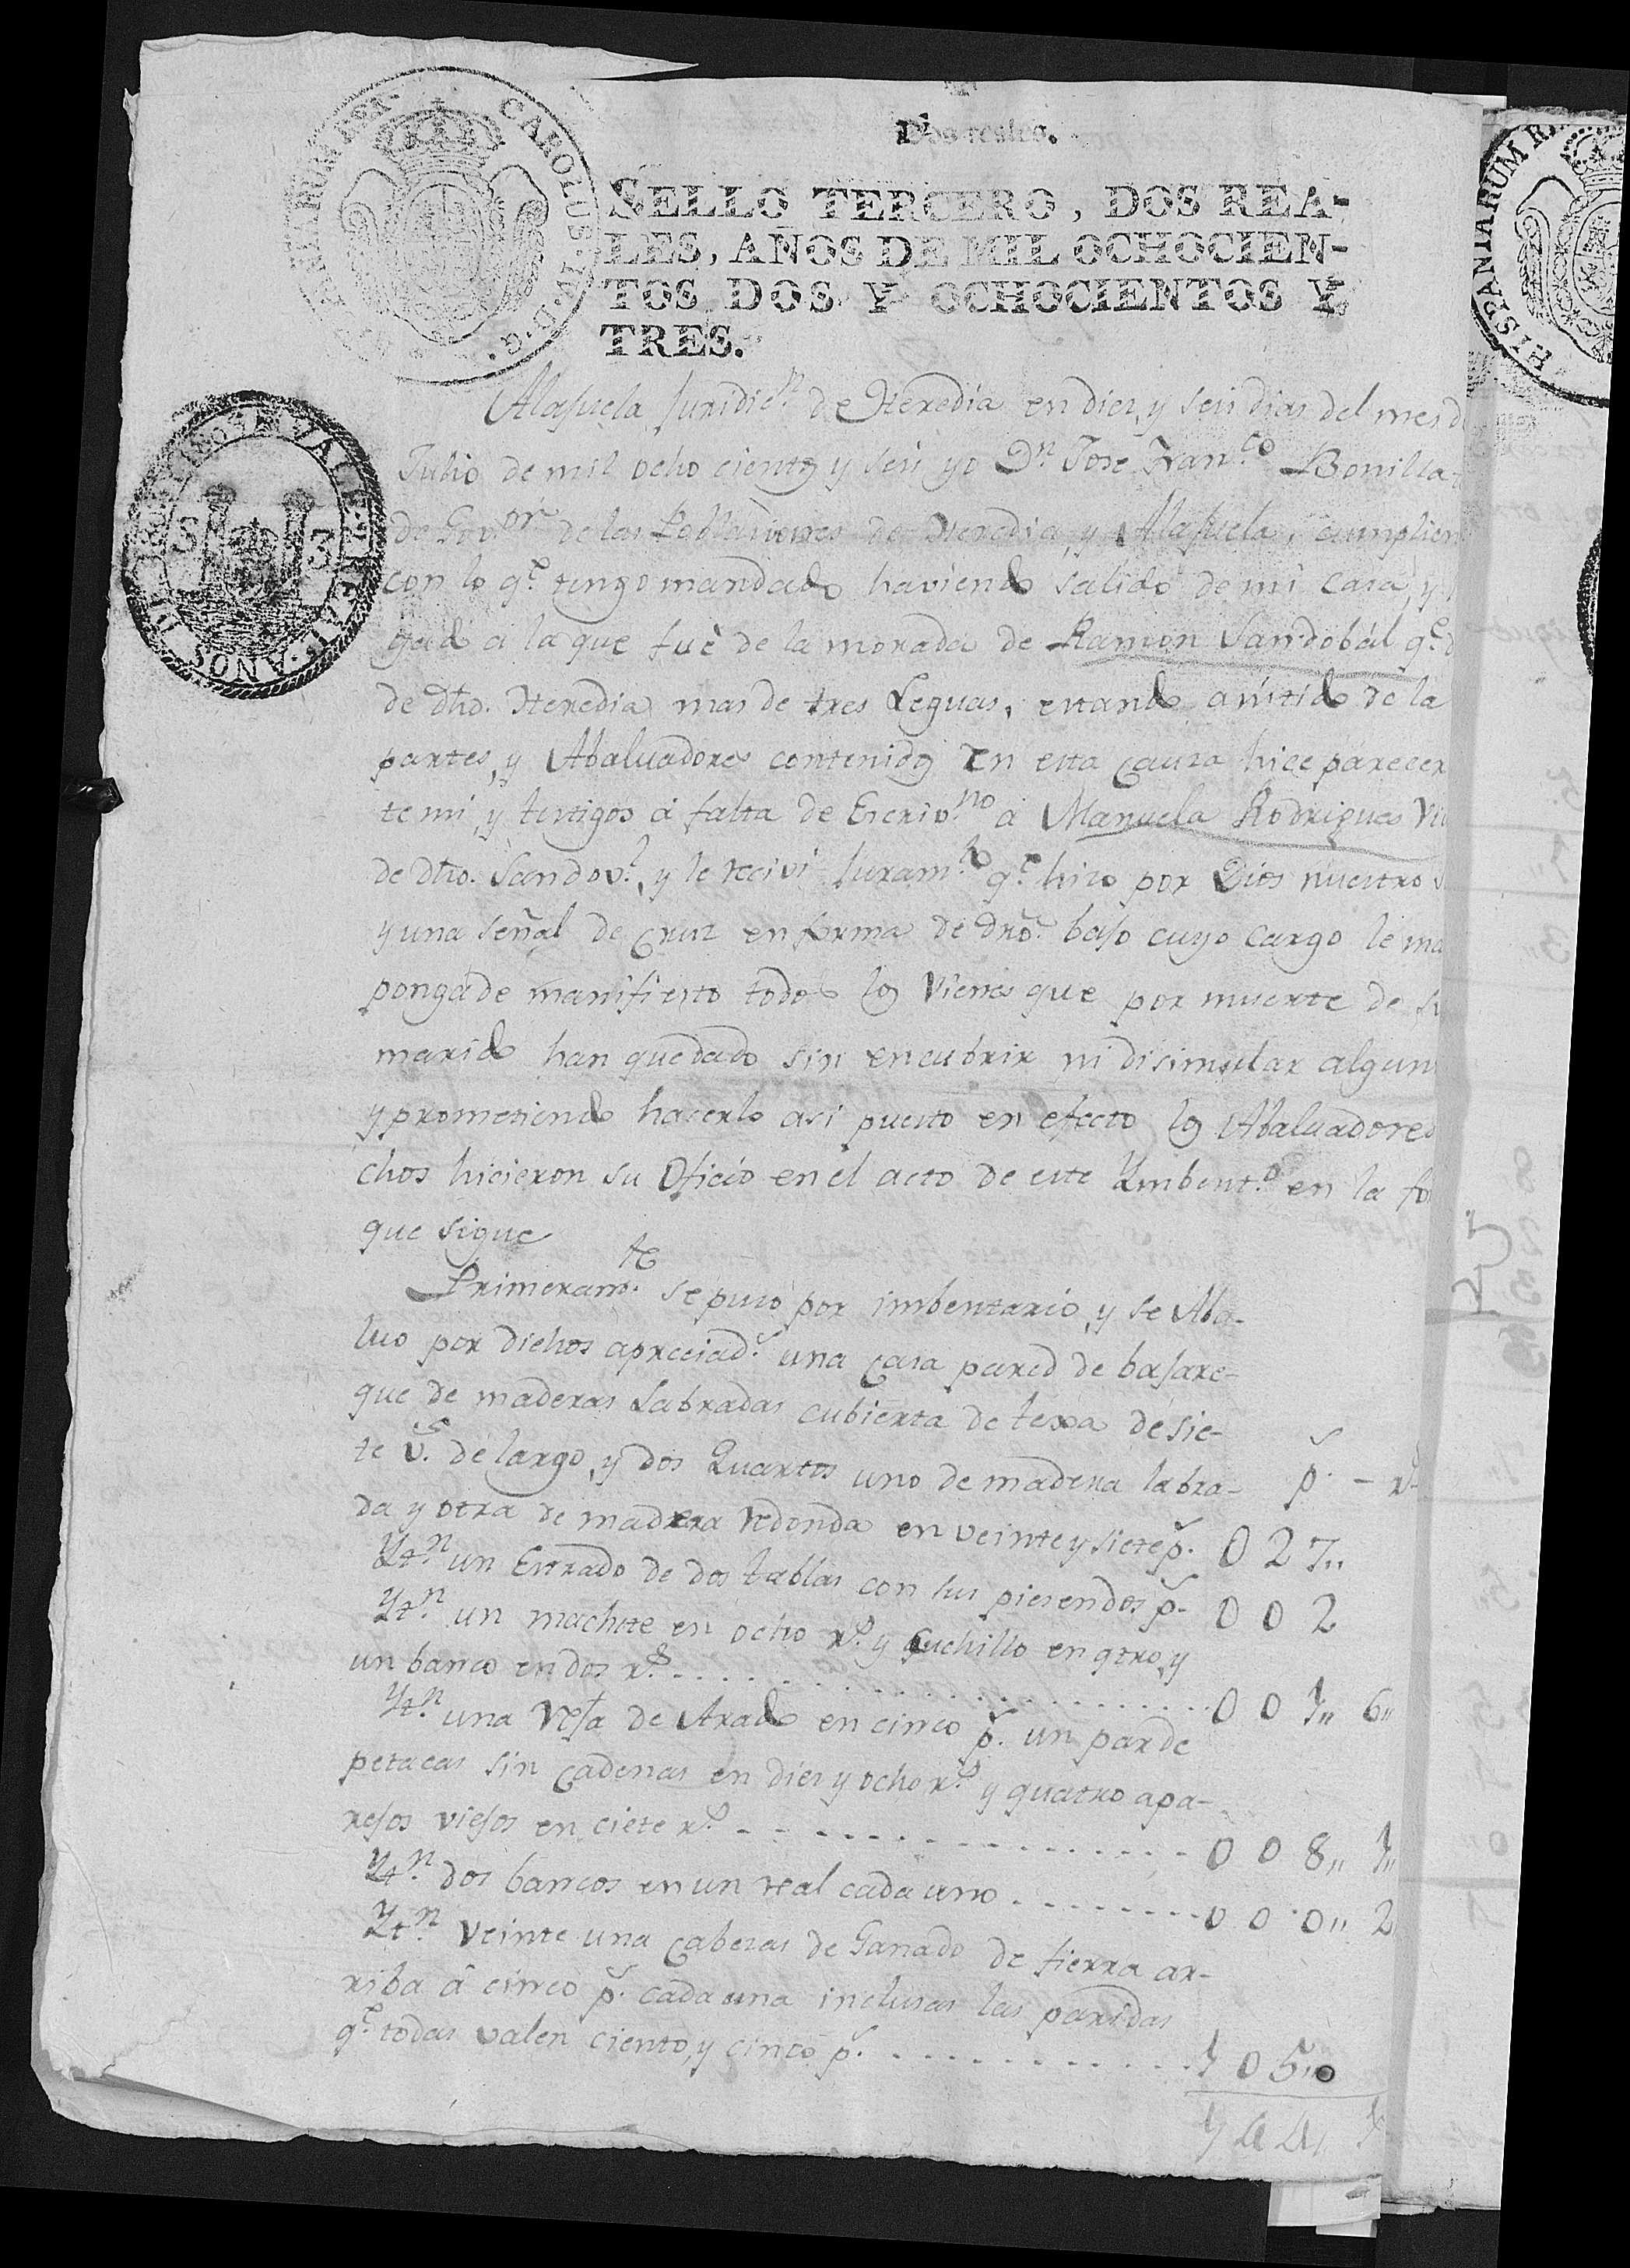 Dos reales.
SELLO TERCERO, DOS REA-
LES, AÑOS DE MIL OCHOCIEN-
TOS DOS Y OCHOCIENTOS Y
TRES.
CAROLUS IV D. G.
HISPANIARUM R
Alajuela Juridicn. de Heredia en diez, y seis dias del mes d
Julio de mil ocho cientos y seis yo Dn. Jose Franco. Bonilla
de Govor. de las Poblaciones de Heredia, y Alajuela, cumplien
con lo qe. tengo mandado haviendo salido de mi casa, y
gado a la que fuè de la morada de Ramon Sandobál qe. d
de dho. Heredia mas de tres Leguas, estando asistido de la
partes, y Abaluadores contenidos en esta causa hice parecer
te mi, y testigos à falta de Escrivno. a Manuela Rodrigues Viu
de dho. Sandovl., y le recivi Juramto. qe. hizo por Dios nuestro S
y una señal de Cruz en forma de dro. bajo cuyo cargo le ma
ponga de manifiesto todos los Vienes que por muerte de su
marido han quedado sin encubrir ni disimular algun
y prometiendo hacerlo asi puesto en efecto los Abaluadores
chos hicieron su Oficio en el acto de este Ymbento. en la fo
que sigue
Primeramte. se puso por imbentario, y se Aba-
luo por dichos apreciads. una Casa pared de bajare-
que de maderas Labradas cubierta de texa de sie-
te vs. de largo, y dos Quartos uno de madera labra- ps. - rs.
da y otra de madera redonda en veinte y siete ps. 027,,
Ytn. un Estrado de dos tablas con sus pies en dos ps. 002
Ytn. un machete en ocho rs. y cuchillo en qtro, y
un banco en dos rs. 001,, 6,,
Ytn. una reja de Arado en cinco ps. un par de
petacas sin cadenas en dies y ocho rs. y quatro apa-
rejos viejos en ciete rs. 008,, 1,,
Ytn. dos bancos en un real cada uno 000,, 2
Ytn. veinte una cabezas de Ganado de tierra ar-
riba â cinco ps. cada una inclusas las paridas
qe. todas valen ciento, y cinco ps. 105,,0
144,, 1